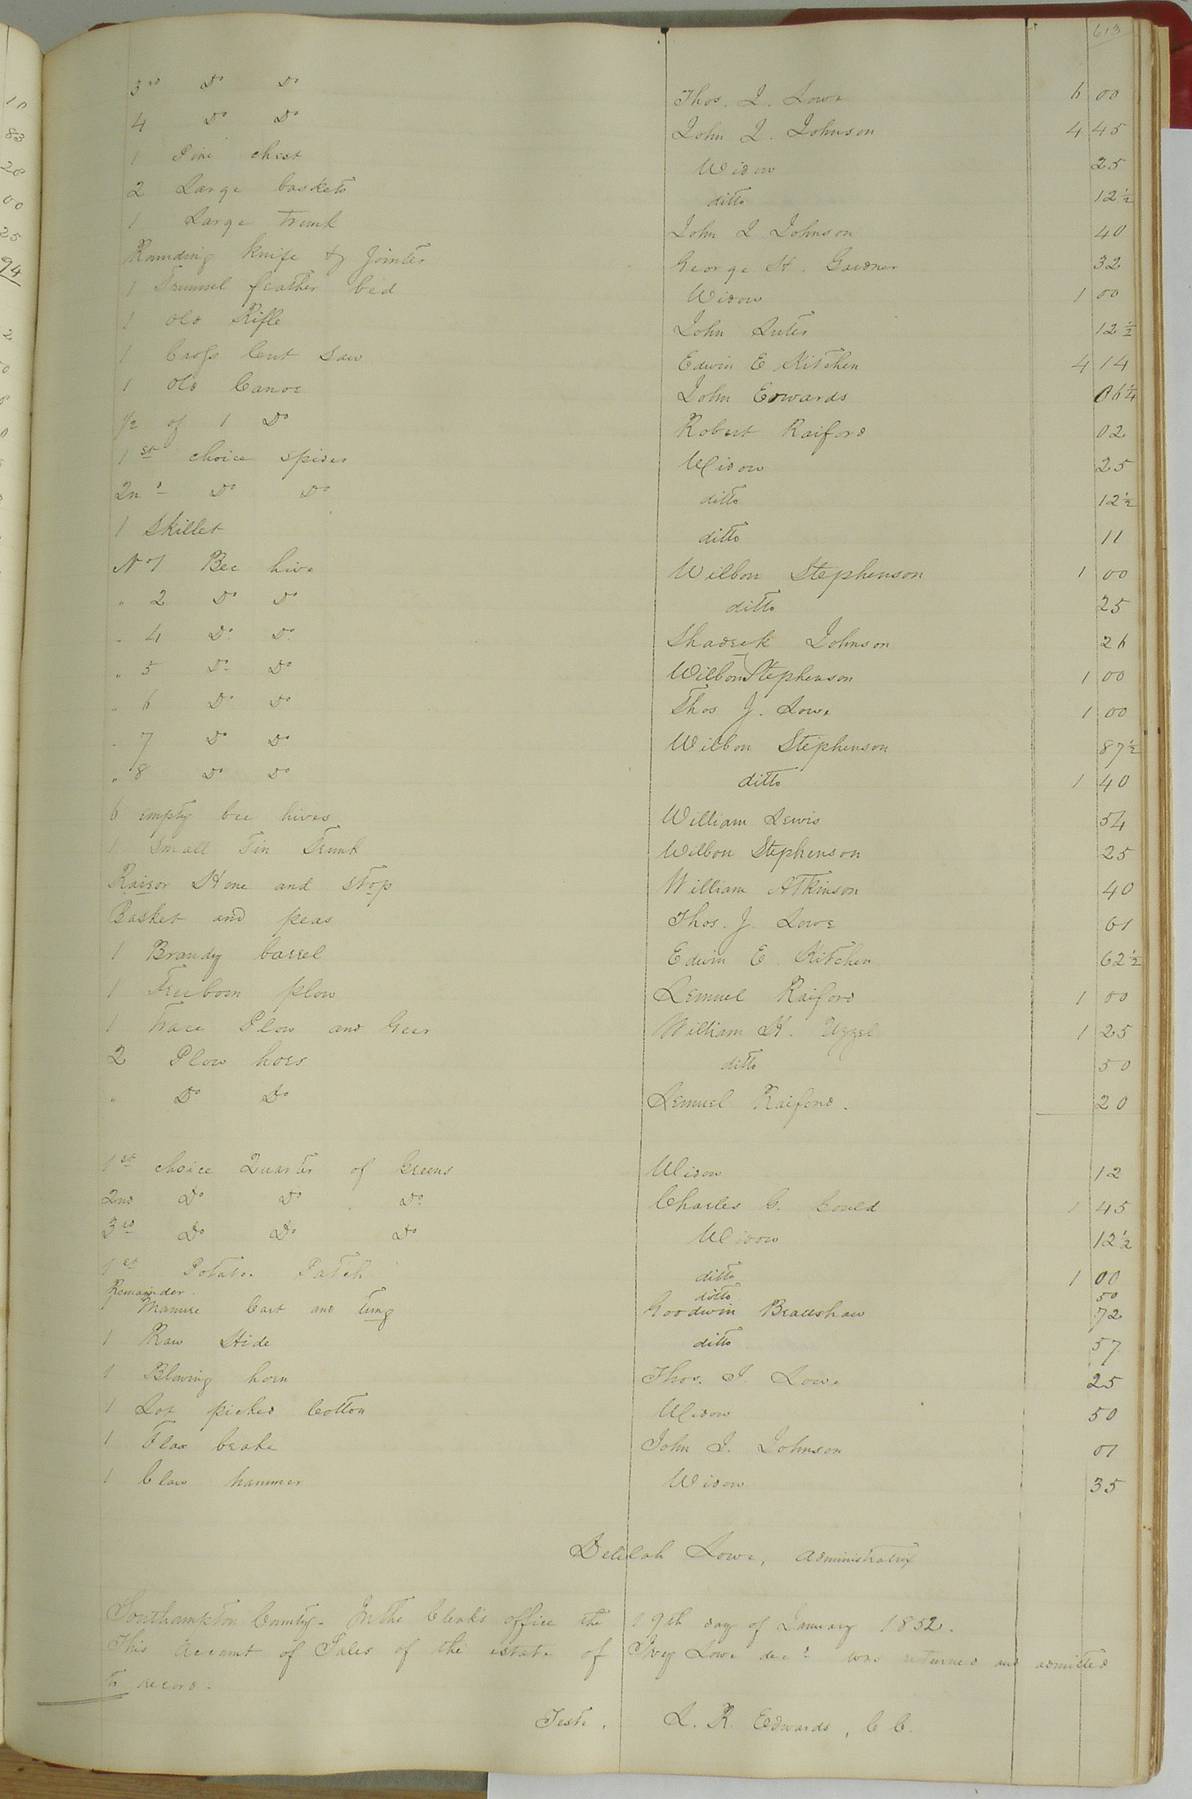 613
3rd Do Do Thos. J. Lowe 6 00
4 Do Do John J. Johnson 4 45
1 Pine chest Widow 25
2 Large baskets ditto 12½
1 Large trunk John J Johnson 40
Rounding knife & Jointer George H. Gardner 32
1 Trunnel feather bed Widow 1 00
1 Old Rifle John Luter 12½
1 Cross Cut Saw Edwin E Kitchen 4 14
1 Old Canoe John Edwards 06¼
½ of 1 Do Robert Raiford 02
1st choice spider Widow 25
2nd Do Do ditto 12½
1 Skillet ditto 11
No 1 Bee hive Wilbon Stephenson 1 00
" 2 Do Do ditto 25
" 4 Do Do Shadrck Johnson 26
" 5 Do Do Wilbon Stephenson 1 00
" 6 Do Do Thos J. Lowe 1 00
" 7 Do Do Wilbon Stephenson 87½
" 8 Do Do ditto 1 40
6 empty bee hives William Lewis 54
1 Small Tin Trunk Wilbon Stephenson 25
Raizor Hone and Strop William Atkinson 40
Basket and peas Thos. J. Lowe 61
1 Brandy barrel Edwin E. Kitchen 62½
1 Freeborn plow Lemuel Raiford 1 00
1 Trace Plow and Geer William H. Uzzel 1 25
2 Plow hoes ditto 50
" Do Do Lemuel Raiford. 20
1st choice Quarter of Greens Widow 12
2nd Do Do Do Charles G. Could 1 45
3rd Do Do Do Widow 12½
1st Potatoe Patch ditto 1 00
Remainder ditto 50
Manure Cart and Tung Goodwin Bradshaw 72
1 Raw Hide ditto 57
1 Blowing horn Thos. J. Lowe 25
1 Lot picked Cotton Widow 50
1 Flax brake John J. Johnson 01
1 Claw hammer Widow 35
Delilah Lowe, administratrix
Southampton County. In the Clerk's office the 19th day of January 1852.
This Account of Sales of the estate of Ivey Lowe decd was returned and admitted
to record.
Teste, L. R. Edwards, C C.